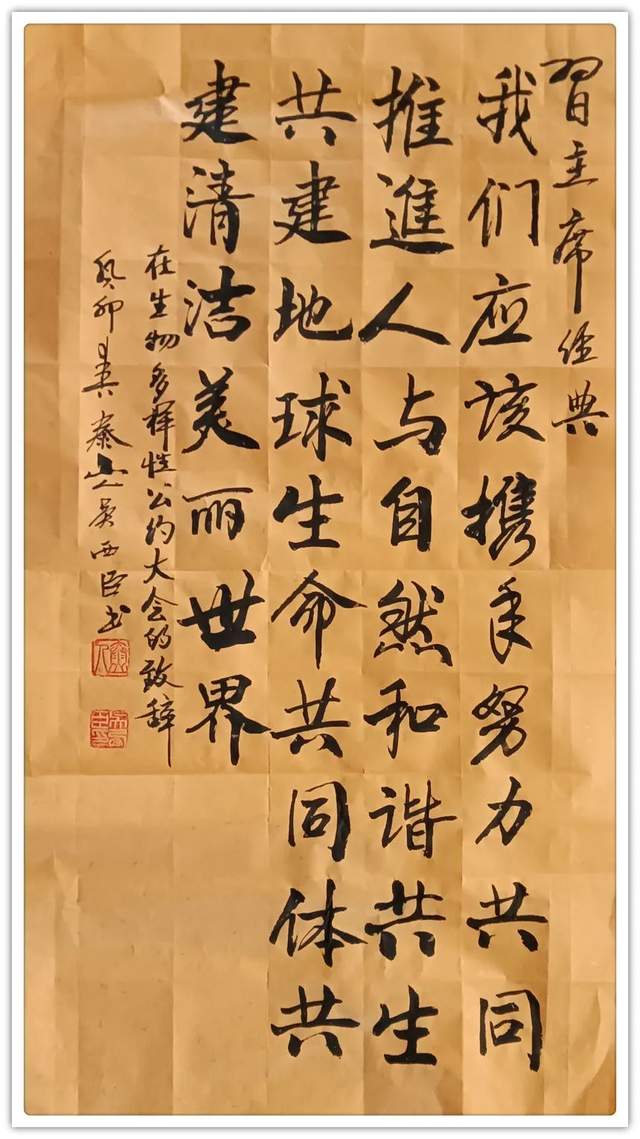 習主席经典
我们应该携手努力共同
推進人与自然和谐共生
共建地球生命共同体共
建清洁美丽世界
在生物多样性公约大会的致辞
癸卯春泰山吴西臣书